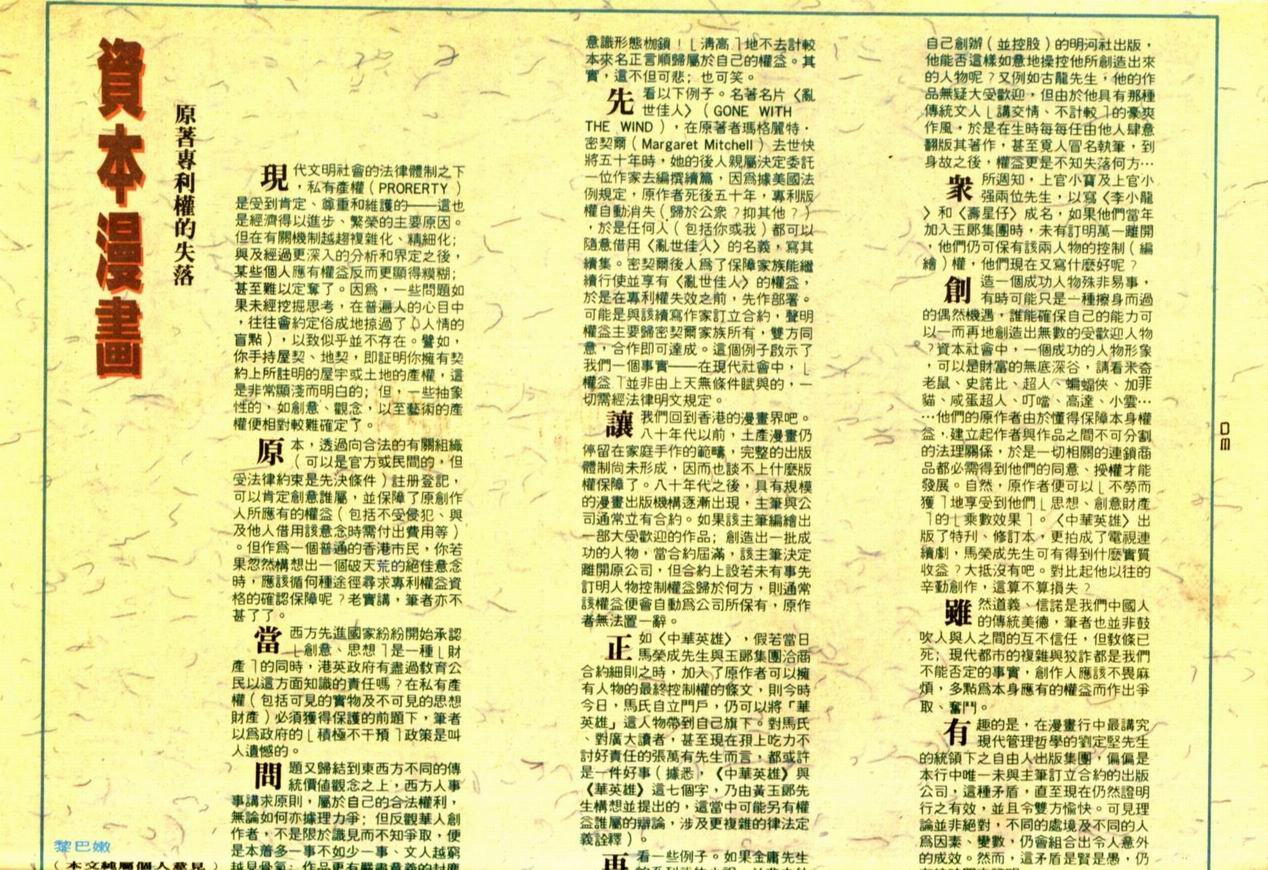 資本漫畫
原著專利權的失落
現代文明社會的法律體制之下
，私有產權（PRORERTY）
是受到肯定、尊重和維護的——這也
是經濟得以進步、繁榮的主要原因。
但在有關機制越趨複雜化、精細化；
與及經過更深入的分析和界定之後，
某些個人應有權益反而更顯得糢糊；
甚至難以定奪了。因爲，一些問題如
果未經挖掘思考，在普遍人的心目中
，往往會約定俗成地掠過了（人情的
盲點），以致似乎並不存在。譬如，
你手持屋契、地契，即証明你擁有契
約上所註明的屋宇或土地的產權，這
是非常顯淺而明白的；但，一些抽象
性的，如創意、觀念，以至藝術的產
權便相對較難確定了。
原本，透過向合法的有關組織
（可以是官方或民間的，但
受法律約束是先決條件）註册登記，
可以肯定創意誰屬，並保障了原創作
人所應有的權益（包括不受侵犯、與
及他人借用該意念時需付出費用等）
。但作爲一個普通的香港市民，你若
果忽然構想出一個破天荒的絕佳意念
時，應該循何種途徑尋求專利權益資
格的確認保障呢？老實講，筆者亦不
甚了了。
當西方先進國家紛紛開始承認
﹂創意、思想﹁是一種﹂財
產﹁的同時，港英政府有盡過敎育公
民以這方面知識的責任嗎？在私有產
權（包括可見的實物及不可見的思想
財產）必須獲得保護的前題下，筆者
以爲政府的﹂積極不干預﹁政策是叫
人遺憾的。
問題又歸結到東西方不同的傳
統價値觀念之上，西方人事
事講求原則，屬於自己的合法權利，
無論如何亦據理力爭；但反觀華人創
作者，不是限於識見而不知爭取，便
是本着多一事不如少一事、文人越窮
黎巴嫩
意識形態枷鎖！﹂淸高﹁地不去計較
本來名正言順歸屬於自己的權益。其
實，這不但可悲；也可笑。
先看以下例子。名著名片〈亂
世佳人〉（GONE WITH
THE WIND），在原著者瑪格麗特．
密契爾（Margaret Mitchell）去世快
將五十年時，她的後人親屬決定委託
一位作家去編撰續篇，因爲據美國法
例規定，原作者死後五十年，專利版
權自動消失（歸於公衆？抑其他？）
，於是任何人（包括你或我）都可以
隨意借用〈亂世佳人〉的名義，寫其
續集。密契爾後人爲了保障家族能繼
續行使並享有〈亂世佳人〉的權益，
於是在專利權失效之前，先作部署。
可能是與該續寫作家訂立合約，聲明
權益主要歸密契爾家族所有，雙方同
意，合作即可達成。這個例子啟示了
我們一個事實——在現代社會中，﹂
權益﹁並非由上天無條件賦與的，一
切需經法律明文規定。
讓我們回到香港的漫畫界吧。
八十年代以前，土產漫畫仍
停留在家庭手作的範疇，完整的出版
體制尚未形成，因而也談不上什麼版
權保障了。八十年代之後，具有規模
的漫畫出版機構逐漸出現，主筆與公
司通常立有合約。如果該主筆編繪出
一部大受歡迎的作品；創造出一批成
功的人物，當合約屆滿，該主筆決定
離開原公司，但合約上設若未有事先
訂明人物控制權益歸於何方，則通常
該權益便會自動爲公司所保有，原作
者無法置一辭。
正如〈中華英雄〉，假若當日
馬榮成先生與玉郞集團洽商
合約細則之時，加入了原作者可以擁
有人物的最終控制權的條文，則今時
今日，馬氏自立門戶，仍可以將「華
英雄」這人物帶到自己旗下。對馬氏
、對廣大讀者，甚至現在孭上吃力不
討好責任的張萬有先生而言，都或許
是一件好事（據悉，《中華英雄》與
《華英雄》這七個字，乃由黃玉郞先
生構想並提出的，這當中可能另有權
益誰屬的辯論，涉及更複雜的律法定
義詮釋）。
再看一些例子。如果金庸先生
自己創辦（並控股）的明河社出版，
他能否這樣如意地操控他所創造出來
的人物呢？又例如古龍先生，他的作
品無疑大受歡迎，但由於他具有那種
傳統文人﹂講交情、不計較﹁的豪爽
作風，於是在生時每每任由他人肆意
翻版其著作，甚至竟人冒名執筆，到
身故之後，權益更是不知失落何方…
衆所週知，上官小寶及上官小
强兩位先生，以寫〈李小龍
〉和〈壽星仔〉成名，如果他們當年
加入玉郞集團時，未有訂明萬一離開
，他們仍可保有該兩人物的控制（編
繪）權，他們現在又寫什麼好呢？
創造一個成功人物殊非易事，
有時可能只是一種擦身而過
的偶然機遇，誰能確保自己的能力可
以一而再地創造出無數的受歡迎人物
？資本社會中，一個成功的人物形象
，可以是財富的無底深谷，請看米奇
老鼠、史諾比、超人、蝙蝠俠、加菲
貓、咸蛋超人、叮噹、高達、小雲…
…他們的原作者由於懂得保障本身權
益，建立起作者與作品之間不可分割
的法理關係，於是一切相關的連鎖商
品都必需得到他們的同意、授權才能
發展。自然，原作者便可以﹂不勞而
獲﹁地享受到他們﹂思想、創意財產
﹁的﹂乘數效果﹁。〈中華英雄〉出
版了特刊、修訂本，更拍成了電視連
續劇，馬榮成先生可有得到什麼實質
收益？大抵沒有吧。對比起他以往的
辛勤創作，這算不算損失？
雖然道義、信諾是我們中國人
的傳統美德，筆者也並非鼓
吹人與人之間的互不信任，但敎條已
死；現代都市的複雜與狡詐都是我們
不能否定的事實，創作人應該不畏麻
煩，多點爲本身應有的權益而作出爭
取、奮鬥。
有趣的是，在漫畫行中最講究
現代管理哲學的劉定堅先生
的統領下之自由人出版集團，偏偏是
本行中唯一未與主筆訂立合約的出版
公司，這種矛盾，直至現在仍然證明
行之有效，並且令雙方愉快。可見理
論並非絕對，不同的處境及不同的人
爲因素、變數，仍會組合出令人意外
的成效。然而，這矛盾是賢是愚，仍